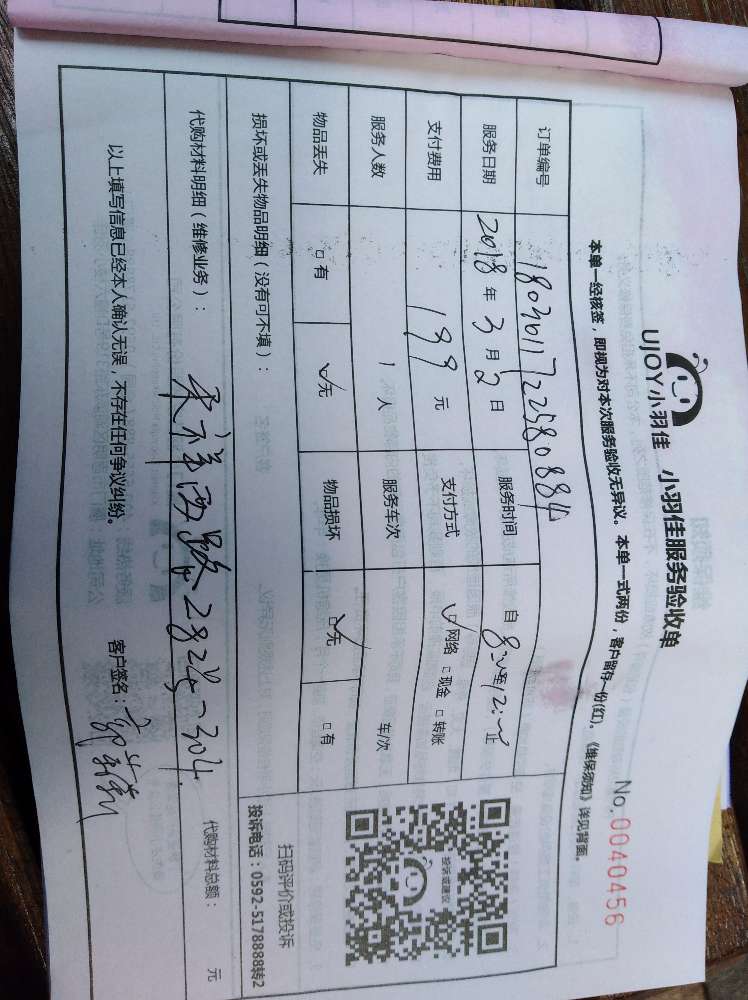 UJOY小羽佳 小羽佳服务验收单
No. 0040456
本单一经核签，即视为对本次服务验收无异议。本单一式两份，客户留存一份(红)。《维保须知》详见背面。
订单编号
服务日期 2018年3月2日 服务时间 自8:00至12:00止
支付费用 199元 支付方式 ☑网络 □现金 □转账
服务人数 1人 服务车次 车/次
物品丢失 □有 ☑无 物品损坏 ☑无 □有
损坏或丢失物品明细（没有可不填）：
扫码评价或投诉
投诉电话：0592-5178888转2
代购材料明细（维修业务）： 祥西路282号-304 代购材料总额： 元
以上填写信息已经本人确认无误，不存在任何争议纠纷。 客户签名：